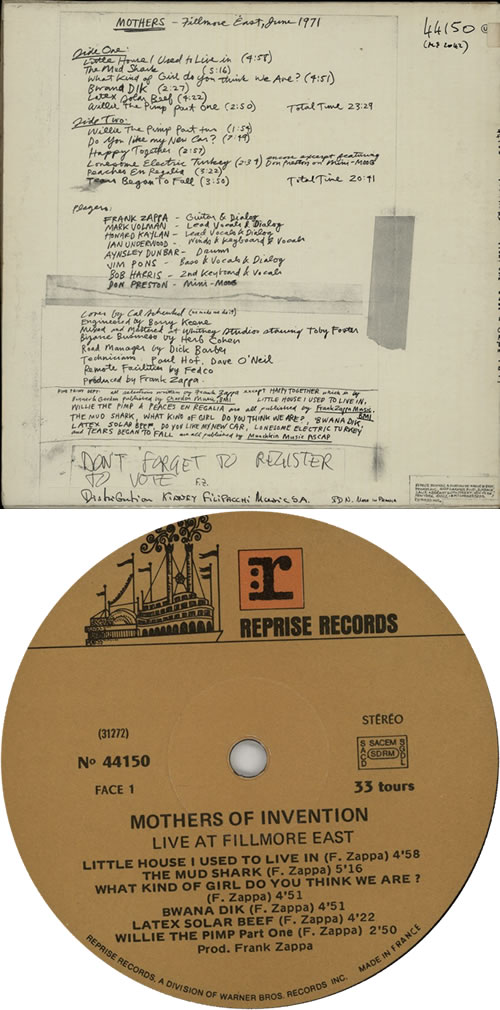 MOTHERS - Fillmore East, June 1971
44150 Ⓤ
(MS 2042)
Side One:
Little House I Used to Live in (4:58)
The Mud Shark (5:16)
What Kind of Girl do you think We Are? (4:51)
Bwana DIK (2:27)
Latex Solar Beef (4:22)
Willie The Pimp Part One (2:50) Total Time 23:29
Side Two:
Willie The Pimp Part Two (1:54)
Do You like my New Car? (7:49)
Happy Together (2:57)
Lonesome Electric Turkey (2:39) encore excerpt featuring Don Preston on Mini-Moog
Peaches En Regalia (3:22)
Tears Began To Fall (3:50) Total Time 20:41
Players:
FRANK ZAPPA - Guitar & Dialog
MARK VOLMAN - Lead Vocals & Dialog
HOWARD KAYLAN - Lead Vocals & Dialog
IAN UNDERWOOD - Winds & Keyboard & Vocals
AYNSLEY DUNBAR - Drums
JIM PONS - Bass & Vocals & Dialog
BOB HARRIS - 2nd Keyboard & Vocals
DON PRESTON - Mini-Moog
Cover by Cal Schenkel
Engineered by Barry Keene
Mixed and Mastered at Whitney Studios starring Toby Foster
Bizarre Business by Herb Cohen
Road Manager by Dick Barber
Technicians: Paul Hof, Dave O'Neil
Remote Facilities by Fedco
Produced by Frank Zappa
FINE PRINT DEPT: all selections written by Frank Zappa except HAPPY TOGETHER which is by
Bonner & Gordon published by Chardon Music, BMI LITTLE HOUSE I USED TO LIVE IN,
WILLIE THE PIMP & PEACES EN REGALIA are all published by Frank Zappa Music, BMI
THE MUD SHARK, WHAT KIND OF GIRL DO YOU THINK WE ARE?, BWANA DIK,
LATEX SOLAR BEEF, DO YOU LIKE MY NEW CAR, LONESOME ELECTRIC TURKEY
and TEARS BEGAN TO FALL are all published by Munchkin Music ASCAP
DON'T FORGET TO REGISTER
TO VOTE F.Z.
Distribution KINNEY FILIPACCHI MUSIC S.A. Made in France
r:
REPRISE RECORDS
(31272)
STÉRÉO
Nº 44150
SACEM
SACD SDRM SGDL
FACE 1
33 tours
MOTHERS OF INVENTION
LIVE AT FILLMORE EAST
LITTLE HOUSE I USED TO LIVE IN (F. Zappa) 4'58
THE MUD SHARK (F. Zappa) 5'16
WHAT KIND OF GIRL DO YOU THINK WE ARE ?
(F. Zappa) 4'51
BWANA DIK (F. Zappa) 4'51
LATEX SOLAR BEEF (F. Zappa) 4'22
WILLIE THE PIMP Part One (F. Zappa) 2'50
Prod. Frank Zappa
REPRISE RECORDS, A DIVISION OF WARNER BROS. RECORDS INC. MADE IN FRANCE